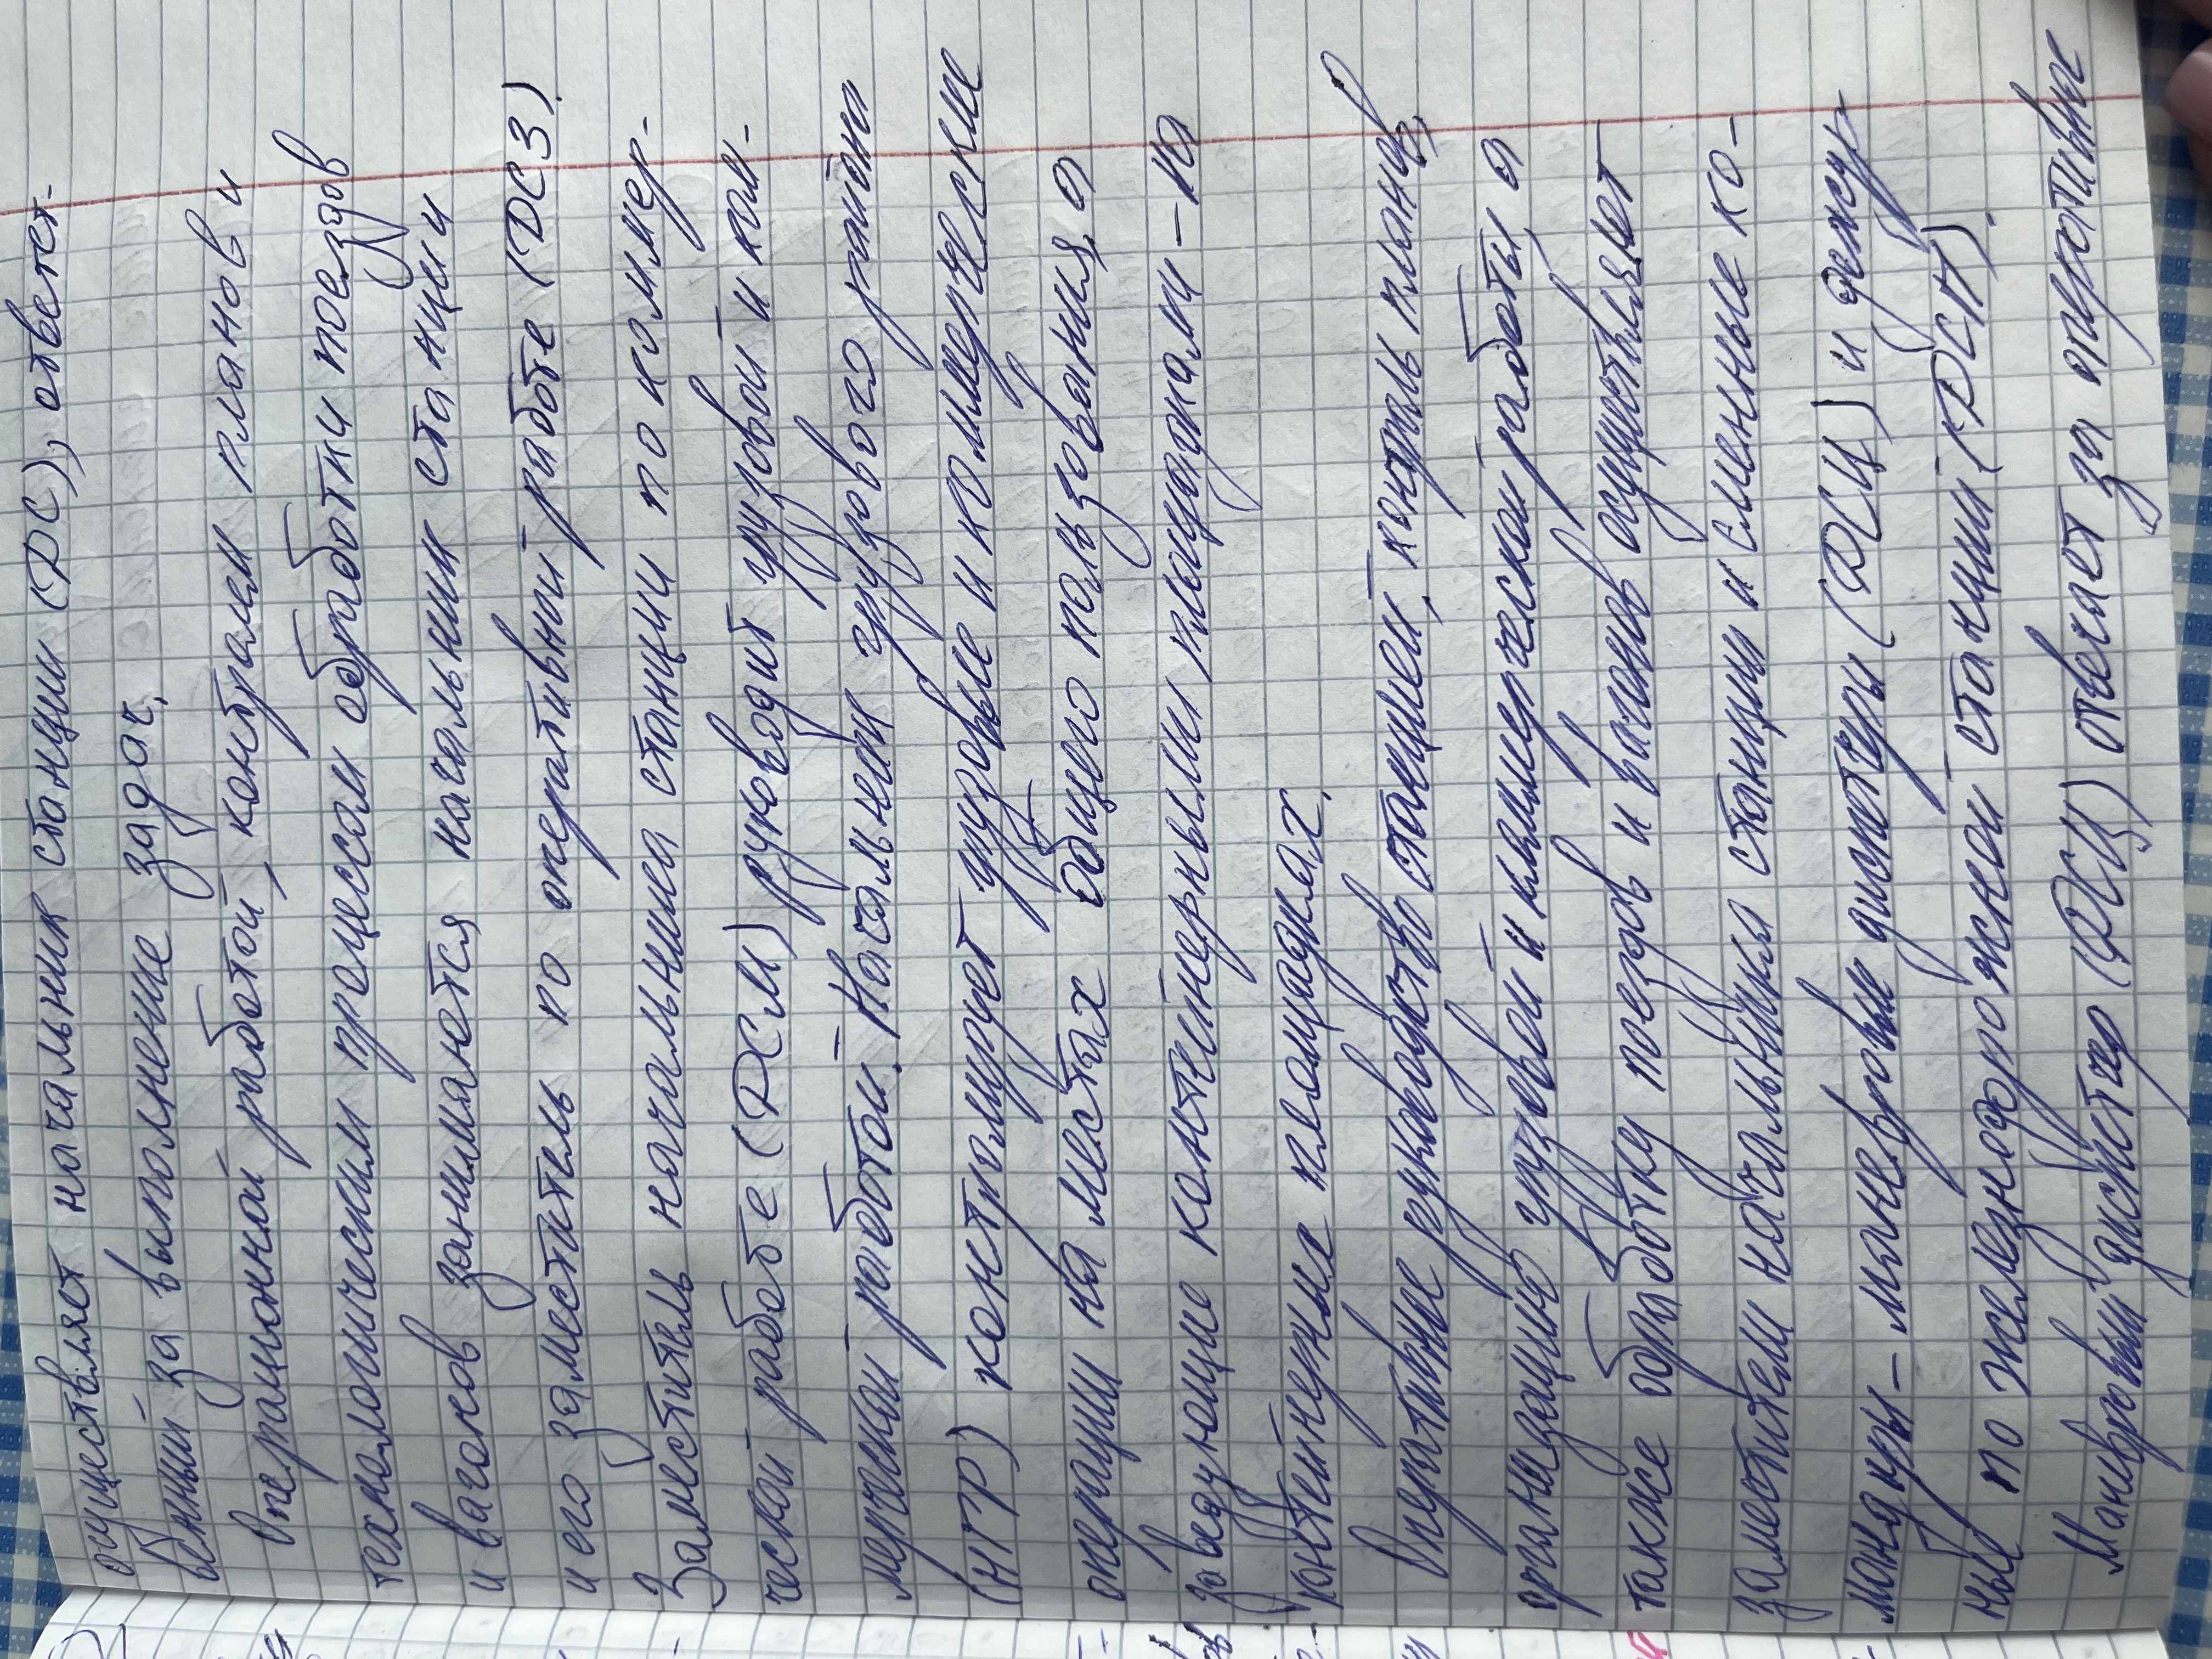 осуществляет начальник станции (ДС), ответст-
венный за выполнение задач.
Операционной работой, контролем планов и
технологическим процессом обработки поездов
и вагонов занимаются начальник станции
и его заместитель по оперативной работе (ДСЗ).
Заместитель начальника станции по коммер-
ческой работе (ДСМ) руководит грузовой и ком-
мерческой работой. Начальник грузового района
(НГР) контролирует грузовые и коммерческие
операции на местах общего пользования, а
заведующие контейнерными площадками - на
контейнерных площадках.
Оперативное руководство станцией, контроль планов,
организацию грузовой и коммерческой работы, а
также обработку поездов и вагонов осуществляют
заместители начальника станции и сменные ко-
мандиры - маневровые диспетчеры (ДСЦ) и дежур-
ные по железнодорожной станции (ДСП).
Маневровый диспетчер (ДСЦ) отвечает за оперативное